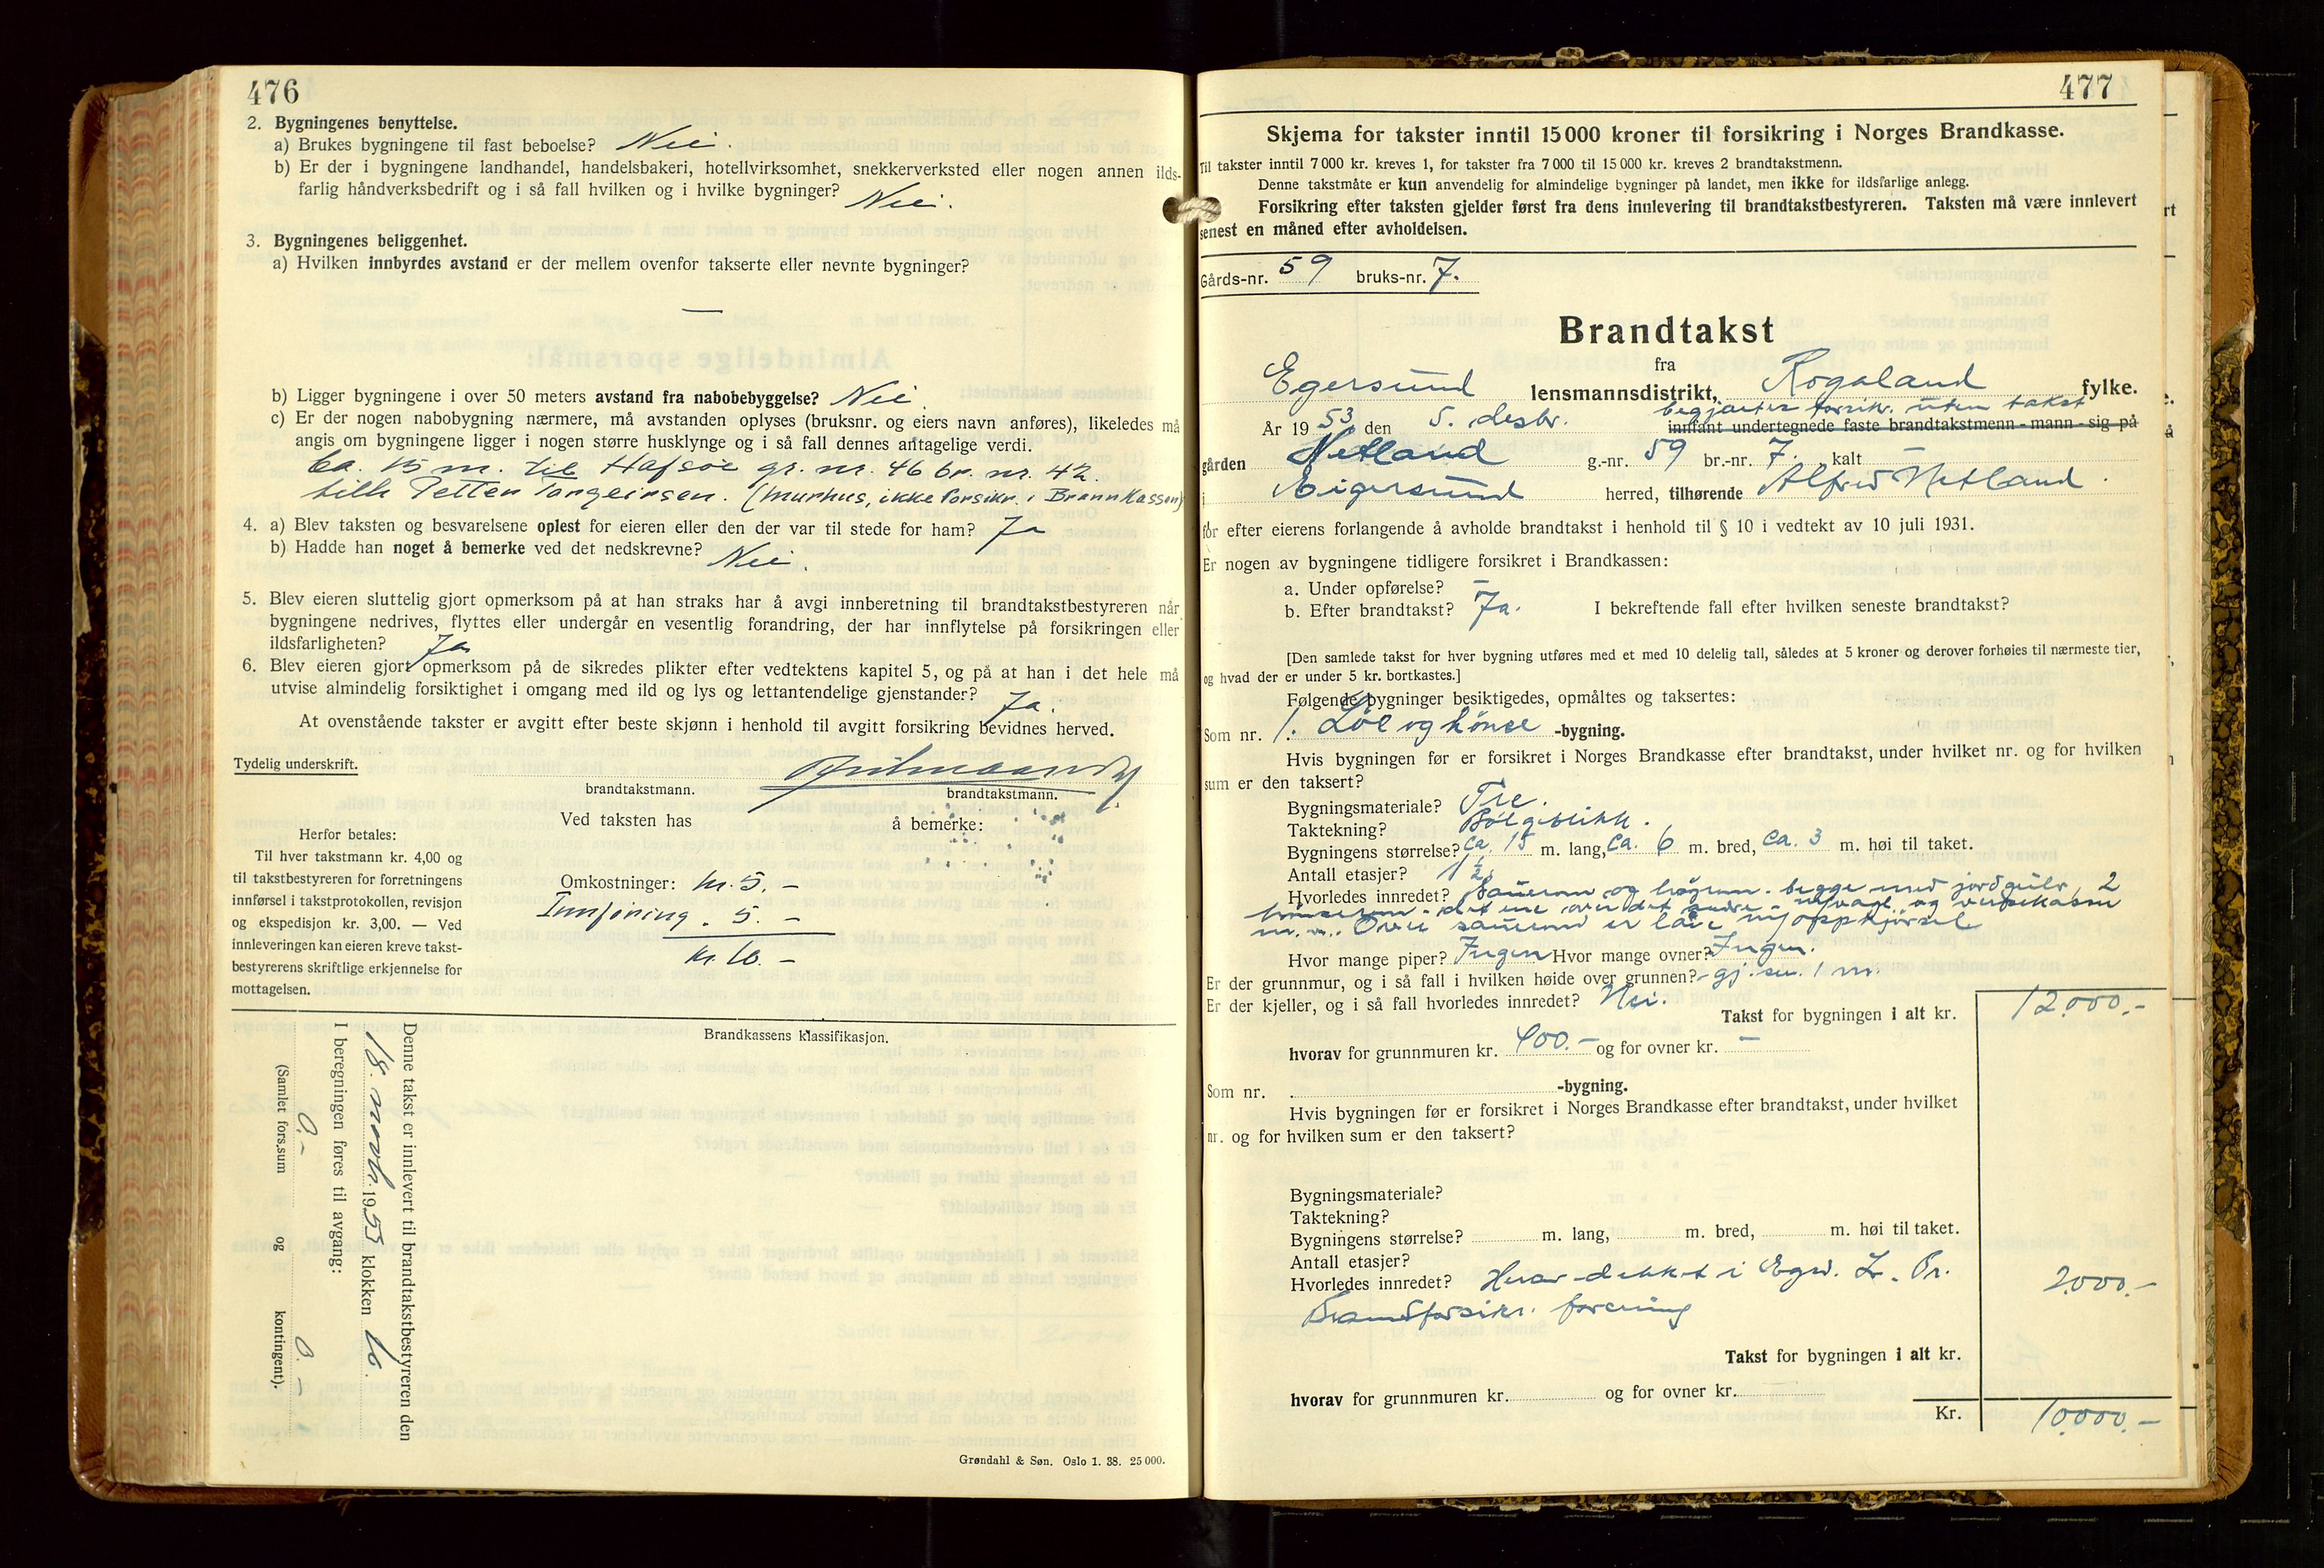 476
2. Bygningenes benyttelse.
a) Brukes bygningene til fast beboelse? Nei.
b) Er der i bygningene landhandel, handelsbakeri, hotellvirksomhet, snekkerverksted eller nogen annen ilds-
farlig håndverksbedrift og i så fall hvilken og i hvilke bygninger? Nei.
3. Bygningenes beliggenhet.
a) Hvilken innbyrdes avstand er der mellem ovenfor takserte eller nevnte bygninger?
—
b) Ligger bygningene i over 50 meters avstand fra nabobebyggelse? Nei.
c) Er der nogen nabobygning nærmere, må avstanden oplyses (bruksnr. og eiers navn anføres), likeledes må
angis om bygningene ligger i nogen større husklynge og i så fall dennes antagelige verdi.
ca. 15 m. til Hafsøe gr. nr. 46 br. nr. 42.
tilh. Petter Torgeirsen. (murhus, ikke forsikr. i Brannkassen)
4. a) Blev taksten og besvarelsene oplest for eieren eller den der var til stede for ham? Ja
b) Hadde han noget å bemerke ved det nedskrevne? Nei.
5. Blev eieren sluttelig gjort opmerksom på at han straks har å avgi innberetning til brandtakstbestyreren når
bygningene nedrives, flyttes eller undergår en vesentlig forandring, der har innflytelse på forsikringen eller
ildsfarligheten? Ja
6. Blev eieren gjort opmerksom på de sikredes plikter efter vedtektens kapitel 5, og på at han i det hele må
utvise almindelig forsiktighet i omgang med ild og lys og lettantendelige gjenstander? Ja.
At ovenstående takster er avgitt efter beste skjønn i henhold til avgitt forsikring bevidnes herved.
Tydelig underskrift.
brandtakstmann. brandtakstmann.
Ved taksten has å bemerke:
Herfor betales:
Til hver takstmann kr. 4,00 og
til takstbestyreren for forretningens
innførsel i takstprotokollen, revisjon
og ekspedisjon kr. 3,00. — Ved
innleveringen kan eieren kreve takst-
bestyrerens skriftlige erkjennelse for
mottagelsen.
Omkostninger: kr. 5.-
Innføring . 5.-
Kr. 10.-
Brandkassens klassifikasjon.
Denne takst er innlevert til brandtakstbestyreren den
18. nov. 1953 klokken 10.
I beregningen føres til avgang:
0.- 0.-
(Samlet fors.sum og kontingent).
Grøndahl & Søn. Oslo 1. 38. 25 000.
477
Skjema for takster inntil 15 000 kroner til forsikring i Norges Brandkasse.
Til takster inntil 7 000 kr. kreves 1, for takster fra 7 000 til 15 000 kr. kreves 2 brandtakstmenn.
Denne takstmåte er kun anvendelig for almindelige bygninger på landet, men ikke for ildsfarlige anlegg.
Forsikring efter taksten gjelder først fra dens innlevering til brandtakstbestyreren. Taksten må være innlevert
senest en måned efter avholdelsen.
Gårds-nr. 59 bruks-nr. 7.
Brandtakst
fra
Egersund lensmannsdistrikt, Rogaland fylke.
begjærtes forsikr. uten takst
År 1953 den 5. desbr. innfant undertegnede faste brandtakstmenn - mann - sig på
gården Netland g.-nr. 59 br.-nr. 7. kalt —
i Eigersund herred, tilhørende Alfred Netland.
for efter eierens forlangende å avholde brandtakst i henhold til § 10 i vedtekt av 10 juli 1931.
Er nogen av bygningene tidligere forsikret i Brandkassen:
a. Under opførelse? —
b. Efter brandtakst? Ja. I bekreftende fall efter hvilken seneste brandtakst?
[Den samlede takst for hver bygning utføres med et med 10 delelig tall, således at 5 kroner og derover forhøies til nærmeste tier,
og hvad der er under 5 kr. bortkastes.]
Følgende bygninger besiktigedes, opmåltes og taksertes:
Som nr. 1. Løe og hønse -bygning.
Hvis bygningen før er forsikret i Norges Brandkasse efter brandtakst, under hvilket nr. og for hvilken
sum er den taksert?
Bygningsmateriale? Tre.
Taktekning? Bølgeblikk.
Bygningens størrelse? ca. 15 m. lang, ca. 6 m. bred, ca. 3 m. høi til taket.
Antall etasjer? 1½
Hvorledes innredet? Sauerom og høyrom. begge med jordgulv, 2
hønserom - det ene over det andre - m/vagl og verpekasser
m.v.. Over sauerom er låve m/oppkjørsel
Hvor mange piper? Ingen Hvor mange ovner? Ingen.
Er der grunnmur, og i så fall i hvilken høide over grunnen? gj. sn. 1 m.
Er der kjeller, og i så fall hvorledes innredet? Nei.
Takst for bygningen i alt kr. 12.000.-
hvorav for grunnmuren kr. 400.- og for ovner kr. —
Som nr. . -bygning.
Hvis bygningen før er forsikret i Norges Brandkasse efter brandtakst, under hvilket
nr. og for hvilken sum er den taksert?
Bygningsmateriale?
Taktekning?
Bygningens størrelse? m. lang, m. bred, m. høi til taket.
Antall etasjer?
Hvorledes innredet? Herav dekket i Egrs. L. Br. 2000.-
Brandforsikr. forening
Takst for bygningen i alt kr.
hvorav for grunnmuren kr. og for ovner kr.
Kr. 10.000.-